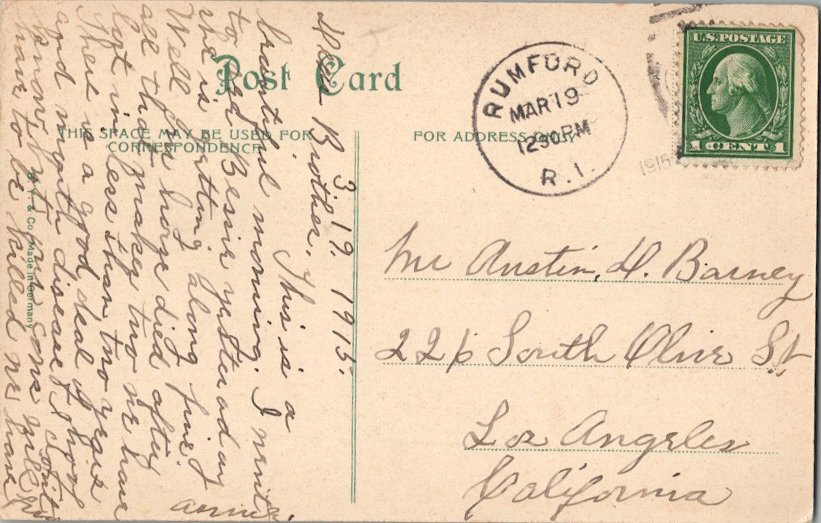 Post Card
THIS SPACE MAY BE USED FOR
CORRESPONDENCE
FOR ADDRESS ONLY
RUMFORD
MAR 19
1230 PM
R.I.
U.S. POSTAGE
1 CENT 1
Mr Austin, D. Barney
226 South Olive St
Los Angeles
California
3. 19. 1915.
Dear Brother.
This is a
beautiful morning. I went
to Bessie yesterday
she is getting along fine.
Well horse died after
all that makes two we have
lost in less than two years
There is a good deal of hoof
and mouth disease I
know cows will
have to be killed we have
Annie
& Co. Made in Germany